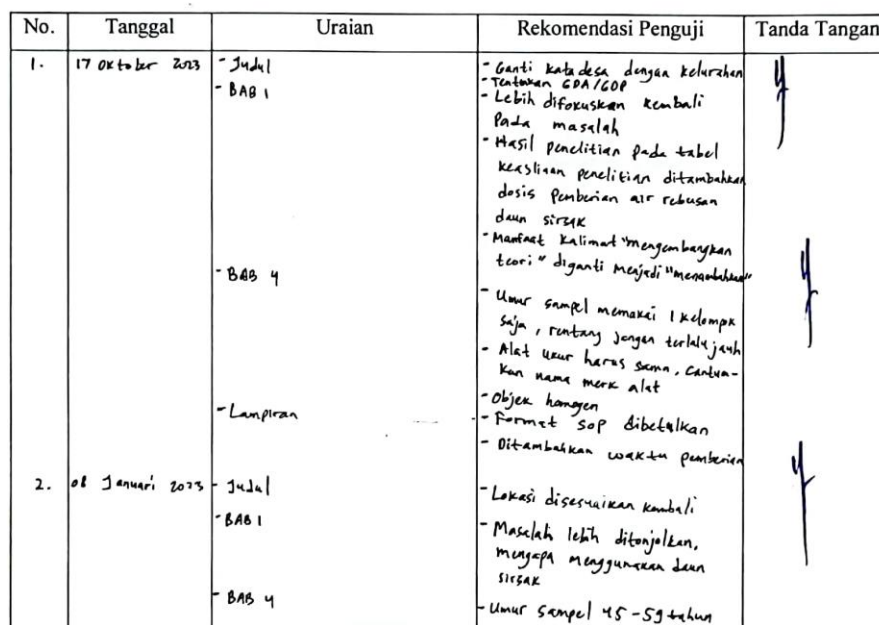 No. Tanggal Uraian Rekomendasi Penguji Tanda Tangan
1. 17 Oktober 2023 - Judul - Ganti kata desa dengan kelurahan
- Tentukan GDA/GDP
- BAB 1 - Lebih difokuskan kembali
pada masalah
- Hasil penelitian pada tabel
keaslian penelitian ditambahkan
dosis pemberian air rebusan
daun sirsak
- Manfaat kalimat "mengembangkan
- BAB 4 teori" diganti menjadi "menambahkan"
- Umur sampel memakai 1 kelompk
saja, rentang jangan terlalu jauh
- Alat ukur harus sama, cantum-
kan nama merk alat
- Objek homogen
- Lampiran - Format SOP dibetulkan
- Ditambahkan waktu pemberian
2. 08 Januari 2023 - Judul - Lokasi disesuaikan kembali
- BAB 1 - Masalah lebih ditonjolkan,
mengapa menggunakan daun
sirsak
- BAB 4 - Umur sampel 45-59 tahun